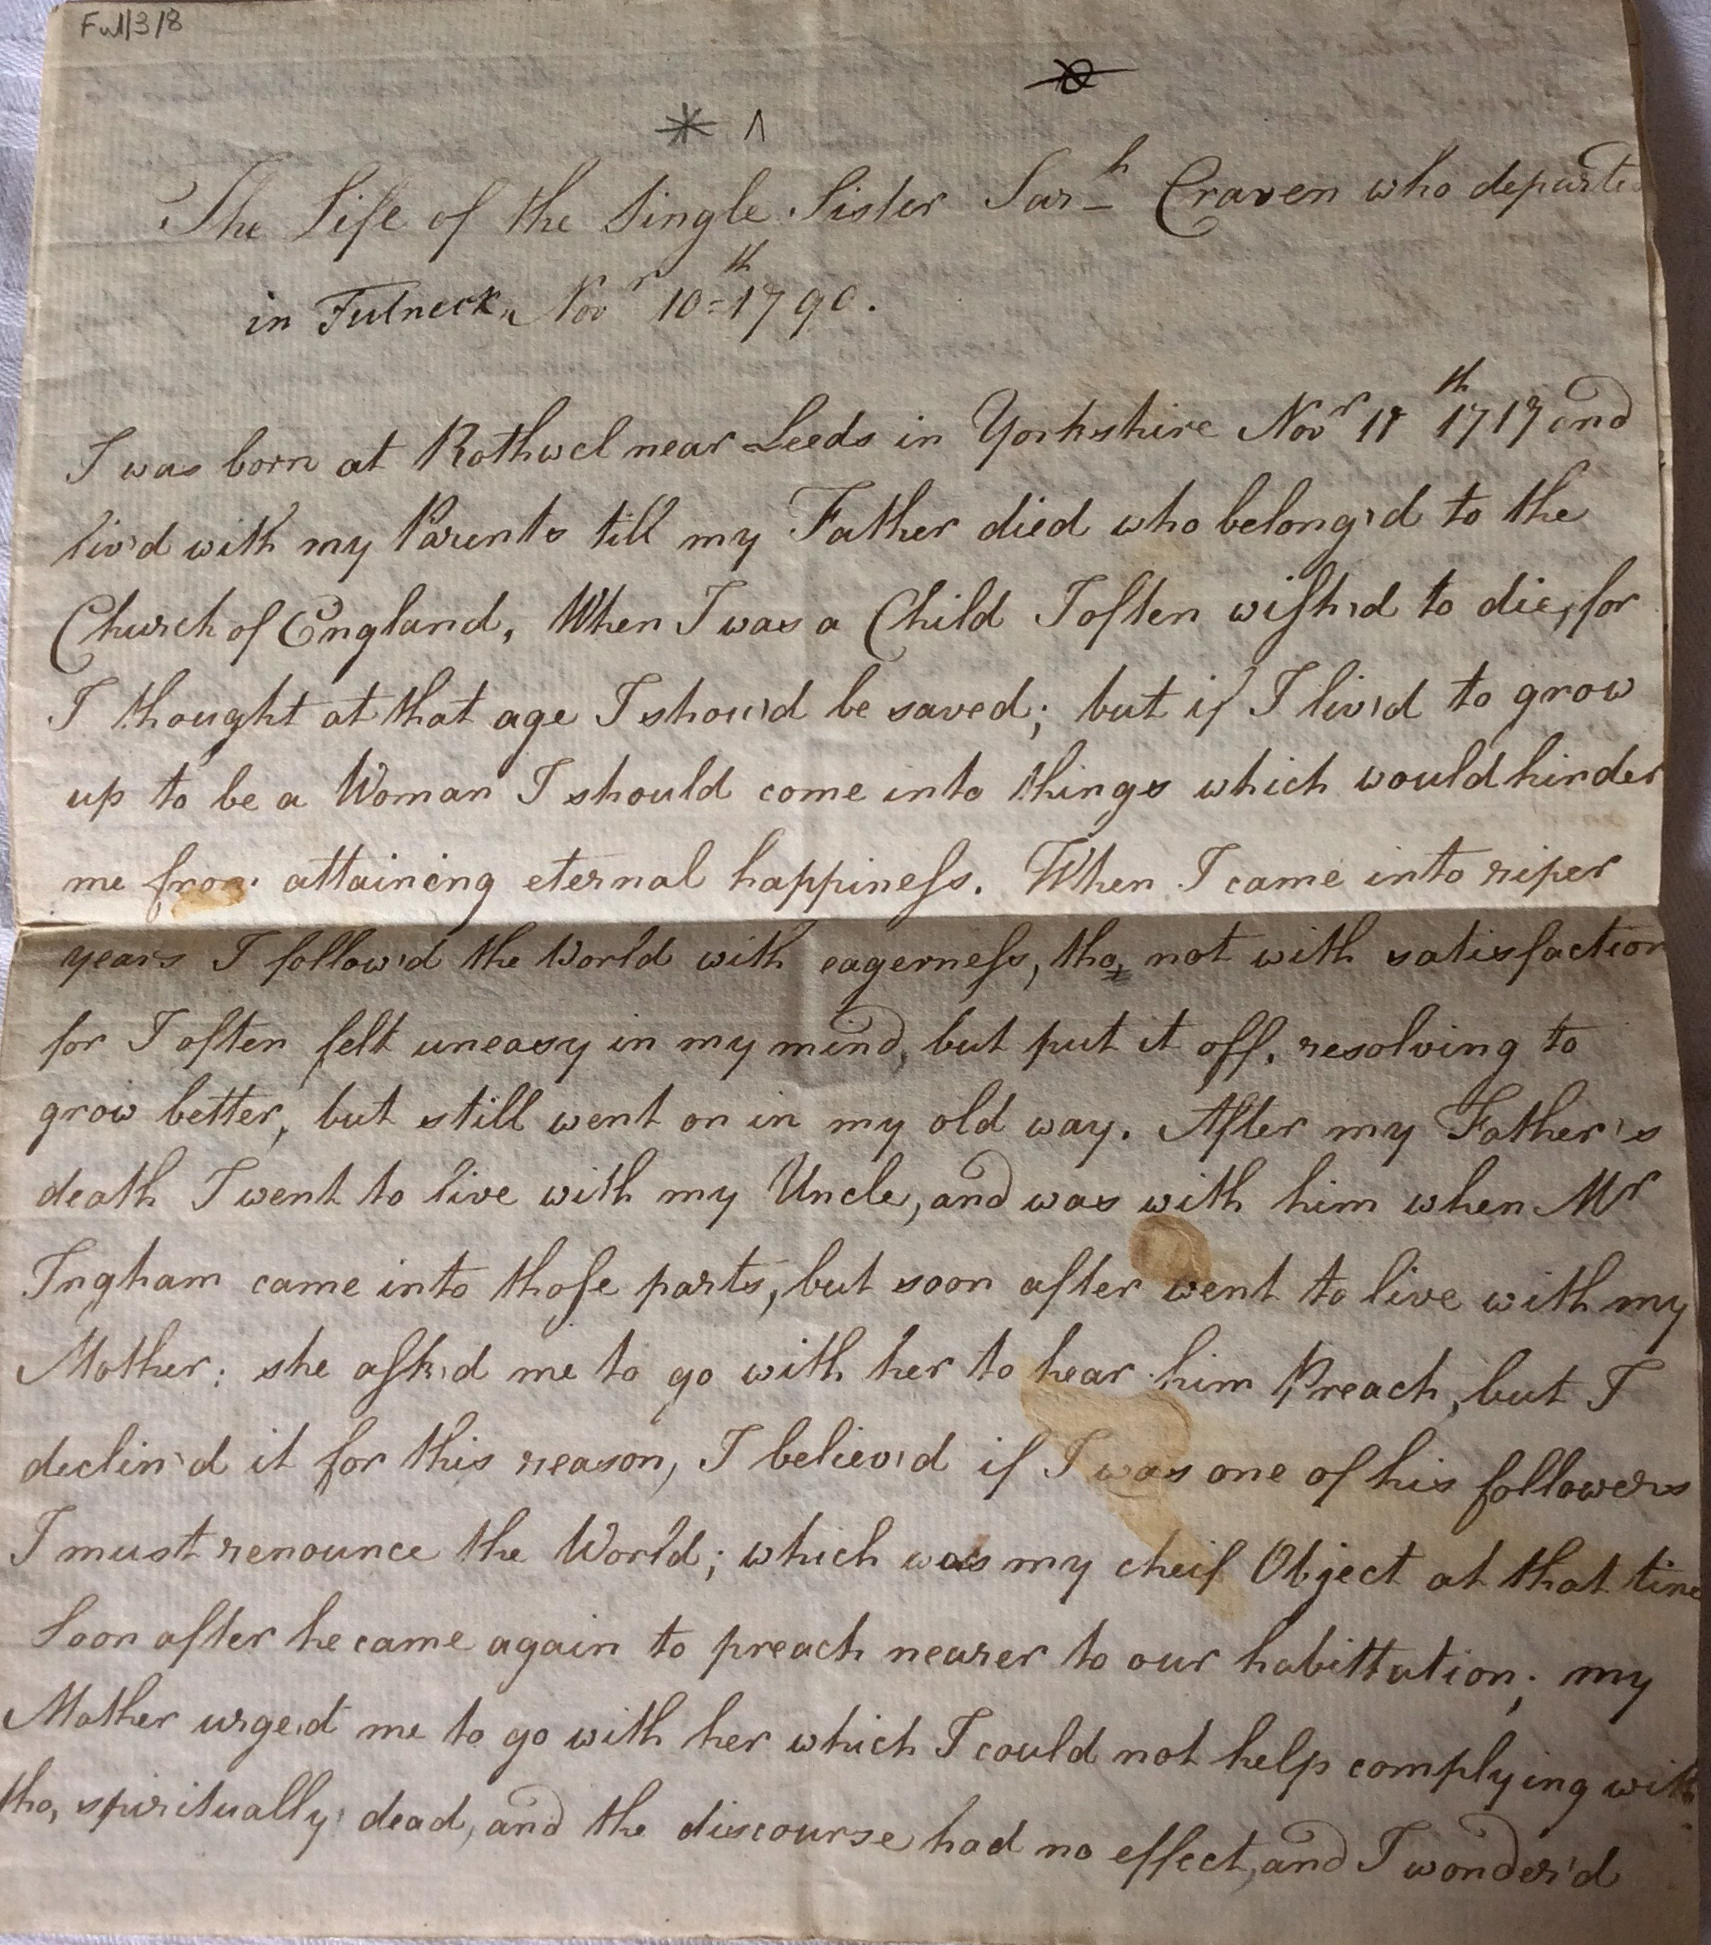 Ful/3/8
The Life of the Single Sister Sarh Craven who departed
in Fulneck, Novr 10th 1790.
I was born at Rothwel near Leeds in Yorkshire Novr 11th 1717 and
liv'd with my Parents till my Father died who belong'd to the
Church of England, When I was a Child I often wish'd to die, for
I thought at that age I shou'd be saved; but if I liv'd to grow
up to be a Woman I should come into things which would hinder
me from attaining eternal happiness. When I came into riper
years I follow'd the World with eagerness, tho, not with satisfaction
for I often felt uneasy in my mind, but put it off, resolving to
grow better, but still went on in my old way. After my Father's
death I went to live with my Uncle, and was with him when Mr
Ingham came into those parts, but soon after went to live with my
Mother; she ask'd me to go with her to hear him Preach, but I
declin'd it for this reason, I believ'd if I was one of his followers
I must renounce the World; which was my cheif Object at that time
Soon after he came again to preach nearer to our habittation; my
Mother urge'd me to go with her which I could not help complying with
tho, spiritually dead, and the discourse had no effect, and I wonder'd